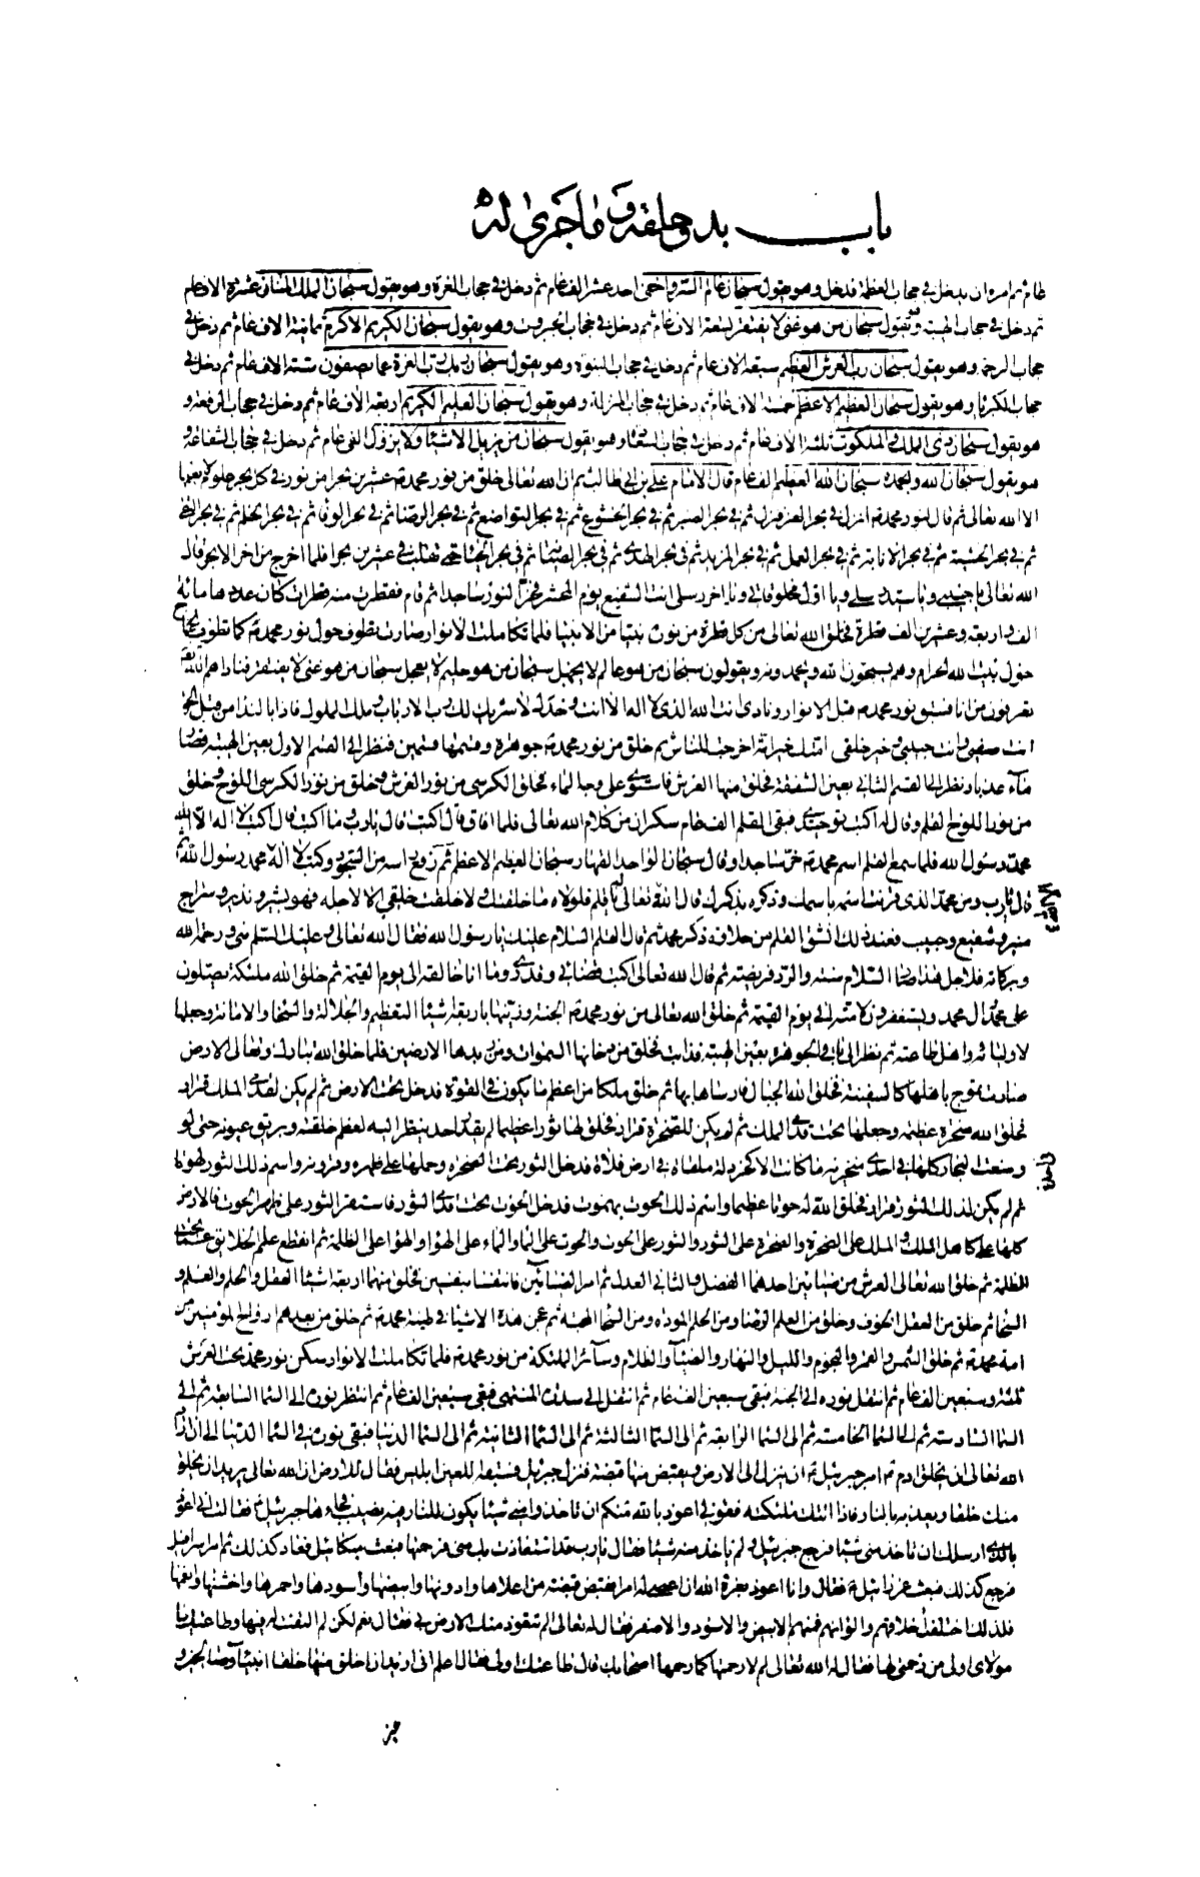 باب بدو خلقه وما جرى له
عام ثم امره ان يدخل في حجاب العظمة فدخل وهو يقول سبحان عالم السر واخفى احد عشر الف عام ثم دخل في حجاب العزة وهو يقول سبحان الملك المنان عشرة الاف عام
ثم دخل في حجاب الهيبة وهو يقول سبحان من هو غني لا يفتقر تسعة الاف عام ثم دخل في حجاب الجبروت وهو يقول سبحان الكريم الاكرم ثمانية الاف عام ثم دخل في
حجاب الرحمة وهو يقول سبحان رب العرش العظيم سبعة الاف عام ثم دخل في حجاب النبوة وهو يقول سبحان ربك رب العزة عما يصفون ستة الاف عام ثم دخل في
حجاب الكبريا وهو يقول سبحان العظيم الاعظم خمسة الاف عام ثم دخل في حجاب المنزلة وهو يقول سبحان العليم الكريم اربعة الاف عام ثم دخل في حجاب الرفعة و
هو يقول سبحان ذي الملك والملكوت ثلثة الاف عام ثم دخل في حجاب السعادة وهو يقول سبحان من يزيل الاشيا ولا يزول الفي عام ثم دخل في حجاب الشفاعة و
هو يقول سبحان الله وبحمده سبحان الله العظيم الف عام قال الامام علي بن ابي طالب ثم ان الله تعالى خلق من نور محمد عشرين بحرا من نور في كل بحر علوم لا يعلمها
الا الله تعالى ثم قال لنور محمد انزل في بحر العز فنزل ثم في بحر الصبر ثم في بحر الخشوع ثم في بحر التواضع ثم في بحر الرضا ثم في بحر الوفا ثم في بحر الحلم ثم في بحر التقى
ثم في بحر الخشية ثم في بحر الانابة ثم في بحر العمل ثم في بحر المزيد ثم في بحر الهدى ثم في بحر الصيانة ثم في بحر الحيا حتى تقلب في عشرين بحرا فلما اخرج من اخر الابحر قال
الله تعالى يا حبيبي ويا سيد رسلي ويا اول مخلوقاتي ويا اخر رسلي انت الشفيع يوم المحشر فخر النور ساجدا ثم قام فقطرت منه قطرات كان عددها مائة
الف واربعة وعشرين الف قطرة فخلق الله تعالى من كل قطرة من نوره نبيا من الانبيا فلما تكاملت الانوار صارت تطوف حول نور محمد كما تطوف الحجاج
حول بيت الله الحرام وهم يسبحون الله ويحمدونه ويقولون سبحان من هو عالم لا يجهل سبحان من هو حليم لا يعجل سبحان من هو غني لا يفتقر فناداهم الله تعالى
تعرفون من انا فسبق نور محمد قبل الانوار ونادى انت الله الذي لا اله الا انت وحدك لا شريك لك رب الارباب وملك الملوك فاذا بالندا من قبل الحق
انت صفيي وانت حبيبي وخير خلقي امتك خير امة اخرجت للناس ثم خلق من نور محمد جوهرة وقسمها قسمين فنظر الى القسم الاول بعين الهيبة فصار
ماء عذبا ونظر الى القسم الثاني بعين الشفقة فخلق منها العرش فاستوى على وجه الماء فخلق الكرسي من نور العرش وخلق من نور الكرسي اللوح وخلق
من نور اللوح القلم وقال له اكتب توحيدي فبقي القلم الف عام سكران من كلام الله تعالى فلما افاق قال اكتب قال يا رب وما اكتب قال اكتب لا اله الا الله
محمد رسول الله فلما سمع القلم اسم محمد خر ساجدا وقال سبحان الواحد القهار سبحان العظيم الاعظم ثم رفع راسه من السجود وكتب لا اله الا الله محمد رسول الله ثم
قال يا رب ومن محمد الذي قرنت اسمه باسمك وذكره بذكرك قال الله تعالى يا قلم فلولاه ما خلقتك ولا خلقت خلقي الا لاجله فهو بشير ونذير وسراج
منير وشفيع وحبيب فعند ذلك انشق القلم من حلاوة ذكر محمد ثم قال القلم السلام عليك يا رسول الله فقال الله تعالى وعليك السلام مني ورحمة الله
وبركاته فلاجل هذا صار السلام سنة والرد فريضة ثم قال الله تعالى اكتب قضائي وقدري وما انا خالقه الى يوم القيمة ثم خلق الله ملئكة يصلون
على محمد وال محمد ويستغفرون لامته الى يوم القيمة ثم خلق الله تعالى من نور محمد الجنة وزينها باربعة اشيا التعظيم والجلالة والسخا والامانة وجعلها
لاوليائه واهل طاعته ثم نظر الى باقي الجوهرة بعين الهيبة فذابت فخلق من دخانها السموات ومن زبدها الارضين فلما خلق الله تبارك وتعالى الارض
صارت تموج باهلها كالسفينة فخلق الله الجبال فارساها بها ثم خلق ملكا من اعظم ما يكون في القوة فدخل تحت الارض ثم لم يكن لقدمي الملك قرار
فخلق الله صخرة عظيمة وجعلها تحت قدمي الملك ثم لم يكن للصخرة قرار فخلق لها ثورا عظيما لم يقدر احد ينظر اليه لعظم خلقته وبريق عيونه حتى لو
وضعت البحار كلها في احدى منخريه ما كانت الا كخردلة ملقاة في ارض فلاة فدخل الثور تحت الصخرة وحملها على ظهره وقرونه واسم ذلك الثور لهوثا
ثم لم يكن لذلك الثور قرار فخلق الله له حوتا عظيما واسم ذلك الحوت بهموت فدخل الحوت تحت قدمي الثور فاستقر الثور على ظهر الحوت فالارض
كلها على كاهل الملك والملك على الصخرة والصخرة على الثور والثور على الحوت والحوت على الماء والماء على الهوا والهوا على الظلمة ثم انقطع علم الخلائق عما تحت
الظلمة ثم خلق الله تعالى العرش من ضيائين احدهما الفضل والثاني العدل ثم امر الضيائين فانتفسا بنفسين فخلق منهما اربعة اشيا العقل والحلم والعلم و
السخا ثم خلق من العقل الخوف وخلق من العلم الرضا ومن الحلم المودة ومن السخا المحبة ثم عجن هذه الاشيا في طينة محمد ثم خلق من بعدهم ارواح المؤمنين من
امة محمد ثم خلق الشمس والقمر والنجوم والليل والنهار والضياء والظلام وسائر الملئكة من نور محمد فلما تكاملت الانوار سكن نور محمد تحت العرش
ثلثة وسبعين الف عام ثم انتقل نوره الى الجنة فبقي سبعين الف عام ثم انتقل الى سدرة المنتهى فبقي سبعين الف عام ثم انتقل نوره الى السما السابعة ثم الى
السما السادسة ثم الى السما الخامسة ثم الى السما الرابعة ثم الى السما الثالثة ثم الى السما الثانية ثم الى السما الدنيا فبقي نوره في السما الدنيا الى ان اراد
الله تعالى ان يخلق ادم ثم امر جبرئيل ان ينزل الى الارض ويقبض منها قبضة فنزل جبرئيل فسبقه اللعين ابليس فقال للارض ان الله تعالى يريد ان يخلق
منك خلقا ويعذبه بالنار فاذا اتتك ملئكته فقولي اعوذ بالله منكم ان تاخذوا مني شيئا يكون للنار فيه نصيب فجاءها جبرئيل فقالت اني اعوذ
بالذي ارسلك ان تاخذ مني شيئا فرجع جبرئيل ولم ياخذ منه شيئا فقال يا رب قد استعاذت بك مني فرحمتها فبعث ميكائيل فعاد كذلك ثم امر اسرافيل
فرجع كذلك فبعث عزرائيل فقال وانا اعوذ بعزة الله ان اعصي له امرا فقبض قبضة من اعلاها وادونها وابيضها واسودها واحمرها واخشنها وانعمها
فلذلك اختلفت اخلاقهم والوانهم فمنهم الابيض والاسود والاصفر فقال له تعالى الم تتعوذ منك الارض بي فقال نعم لكن لم التفت له فيها وطاعتك يا
مولاي اولى من رحمتي لها فقال له الله تعالى لم لا رحمتها كما رحمها اصحابك قال طاعتك اولى فقال اعلم اني اريد ان اخلق منها خلقا انبياء وصالحين و